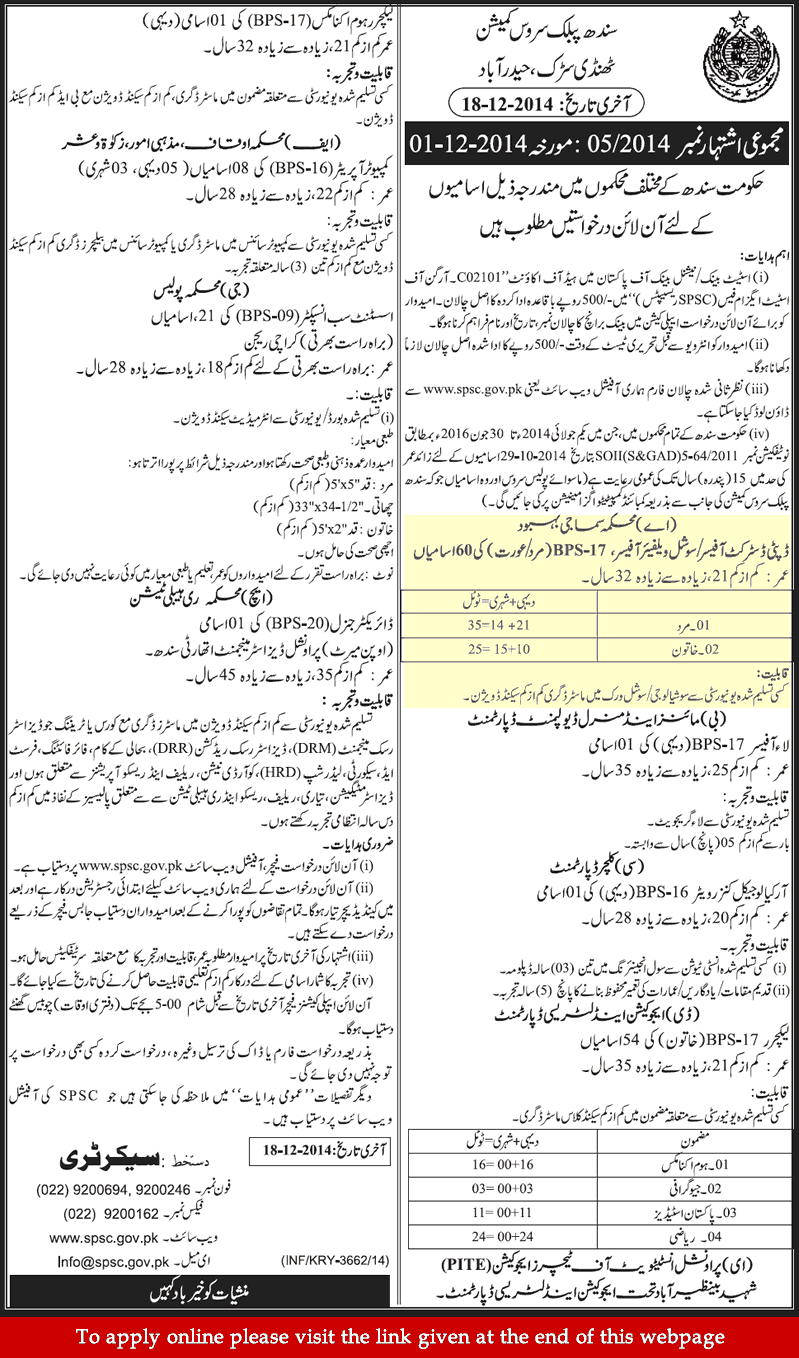 سندھ پبلک سروس کمیشن
ٹھنڈی سڑک، حیدرآباد
آخری تاریخ: 18-12-2014
مجموعی اشتہار نمبر 05/2014 : مورخہ 01-12-2014
حکومت سندھ کے مختلف محکموں میں مندرجہ ذیل اسامیوں
کے لئے آن لائن درخواستیں مطلوب ہیں
اہم ہدایات:
(i) اسٹیٹ بینک/نیشنل بینک آف پاکستان میں ہیڈ آف اکاؤنٹ "C02101۔آرگن آف
اسٹیٹ ایگزام فیس (SPSC رسیپٹس)" میں -/500 روپے باقاعدہ ادا کردہ کا اصل چالان۔ امیدوار
کو برائے آن لائن درخواست اپلیکیشن میں بینک برانچ کا چالان نمبر، تاریخ اور نام فراہم کرنا ہوگا۔
(ii) امیدوار کو انٹرویو سے قبل تحریری ٹیسٹ کے وقت -/500 روپے کا ادا شدہ اصل چالان لازماً
دکھانا ہوگا۔
(iii) نظر ثانی شدہ چالان فارم ہماری آفیشل ویب سائٹ یعنی www.spsc.gov.pk سے
ڈاؤن لوڈ کیا جاسکتا ہے۔
(iv) حکومت سندھ کے تمام محکموں میں، جن میں یکم جولائی 2014ء تا 30 جون 2016ء بمطابق
نوٹیفکیشن نمبر SOII(S&GAD)5-64/2011 بتاریخ 29-10-2014 اسامیوں کے لئے زائد عمر
کی حد میں 15 (پندرہ) سال تک کی عمومی رعایت ہے (ماسوائے پولیس سروس اور وہ اسامیاں جو کہ سندھ
پبلک سروس کمیشن کی جانب سے بذریعہ کمبائنڈ کمپیٹیٹو اگزمینیشن پر کی جائیں گی۔)
(اے) محکمہ سماجی بہبود
ڈپٹی ڈسٹرکٹ آفیسر/سوشل ویلفیئر آفیسر، BPS-17 (مرد/عورت) کی 60 اسامیاں
عمر: کم از کم 21، زیادہ سے زیادہ 32 سال۔
دیہی+شہری=ٹوٹل
01۔مرد 35=14 +21
02۔خاتون 25= 15+10
قابلیت:
کسی تسلیم شدہ یونیورسٹی سے سوشیالوجی/سوشل ورک میں ماسٹر ڈگری کم از کم سیکنڈ ڈویژن۔
(بی) مائنز اینڈ منرل ڈیولپمنٹ ڈپارٹمنٹ
لاء آفیسر BPS-17 (دیہی) کی 01 اسامی
عمر: کم از کم 25، زیادہ سے زیادہ 35 سال۔
قابلیت و تجربہ:
تسلیم شدہ یونیورسٹی سے لاء گریجویٹ۔
بار سے کم از کم 05 (پانچ) سال سے وابستہ۔
(سی) کلچر ڈپارٹمنٹ
آرکیالوجیکل کنزرویٹر BPS-16 (دیہی) کی 01 اسامی
عمر: کم از کم 20، زیادہ سے زیادہ 28 سال۔
قابلیت و تجربہ۔
(i) کسی تسلیم شدہ انسٹی ٹیوشن سے سول انجینئرنگ میں تین (03) سالہ ڈپلومہ۔
(ii) قدیم مقامات/یادگاریں/عمارات کی تعمیر محفوظ بنانے کا پانچ (5) سالہ تجربہ۔
(ڈی) ایجوکیشن اینڈ لٹریسی ڈپارٹمنٹ
لیکچرر BPS-17 (خاتون) کی 54 اسامیاں
عمر: کم از کم 21، زیادہ سے زیادہ 35 سال۔
قابلیت:
کسی تسلیم شدہ یونیورسٹی سے متعلقہ مضمون میں کم از کم سیکنڈ کلاس ماسٹر ڈگری۔
مضمون دیہی+شہری=ٹوٹل
01۔ہوم اکنامکس 16= 00+16
02۔جیوگرافی 03= 00+03
03۔پاکستان اسٹیڈیز 11= 00+11
04۔ ریاضی 24= 00+24
(ای) پراونشل انسٹیٹیوٹ آف ٹیچرز ایجوکیشن (PITE)
شہید بینظیر آباد تحت ایجوکیشن اینڈ لٹریسی ڈپارٹمنٹ۔
لیکچرر ہوم اکنامکس (BPS-17) کی 01 اسامی (دیہی)
عمر کم از کم 21، زیادہ سے زیادہ 32 سال۔
قابلیت و تجربہ:
کسی تسلیم شدہ یونیورسٹی سے متعلقہ مضمون میں ماسٹر ڈگری، کم از کم سیکنڈ ڈویژن مع بی ایڈ کم از کم سیکنڈ
ڈویژن۔
(ایف) محکمہ اوقاف، مذہبی امور، زکوٰة و عشر
کمپیوٹر آپریٹر (BPS-16) کی 08 اسامیاں (05 دیہی، 03 شہری)
عمر: کم از کم 22، زیادہ سے زیادہ 28 سال۔
قابلیت و تجربہ:
کسی تسلیم شدہ یونیورسٹی سے کمپیوٹر سائنس میں ماسٹر ڈگری یا کمپیوٹر سائنس میں بیچلرز ڈگری کم از کم سیکنڈ
ڈویژن مع کم از کم تین (3) سالہ متعلقہ تجربہ۔
(جی) محکمہ پولیس
اسسٹنٹ سب انسپکٹر (BPS-09) کی 21، اسامیاں
(براہ راست بھرتی) کراچی ریجن
عمر: براہ راست بھرتی کے لئے کم از کم 18، زیادہ سے زیادہ 28 سال۔
قابلیت:۔
(i) تسلیم شدہ بورڈ/یونیورسٹی سے انٹرمیڈیٹ سیکنڈ ڈویژن۔
طبعی معیار:
امیدوار عمدہ ذہنی و طبعی صحت رکھتا ہو اور مندرجہ ذیل شرائط پر پورا اترتا ہو:
مرد: قد "5'x5 (کم از کم)
چھاتی۔ "33"x34-1/2 (کم از کم)
خاتون: قد "5'x2 (کم از کم)
اچھی صحت کی حامل ہوں۔
نوٹ: براہ راست تقرر کے لئے امیدواروں کو عمر، تعلیم یا طبعی معیار میں کوئی رعایت نہیں دی جائے گی۔
(ایچ) محکمہ ری ہیبلی ٹیشن
ڈائریکٹر جنرل (BPS-20) کی 01 اسامی
(اوپن میرٹ) پراونشل ڈیزاسٹر مینجمنٹ اتھارٹی سندھ۔
عمر: کم از کم 35، زیادہ سے زیادہ 45 سال۔
قابلیت و تجربہ:
تسلیم شدہ یونیورسٹی سے کم از کم سیکنڈ ڈویژن میں ماسٹرز ڈگری مع کورس یا ٹریننگ جو ڈیزاسٹر
رسک مینجمنٹ (DRM)، ڈیزاسٹر رسک ریڈکشن (DRR)، بحالی کے کام، فائر فائٹنگ، فرسٹ
ایڈ، سیکورٹی، لیڈر شپ (HRD)، کوآرڈی نیشن، ریلیف اینڈ ریسکو آپریشنز سے متعلق ہوں اور
ڈیزاسٹر مٹیگیشن، تیاری، ریلیف، ریسکو اینڈ ری ہیبلی ٹیشن سے سے متعلق پالیسیز کے نفاذ میں کم از کم
دس سالہ انتظامی تجربہ رکھتے ہوں۔
ضروری ہدایات۔
(i) آن لائن درخواست فیچر، آفیشل ویب سائٹ www.spsc.gov.pk پر دستیاب ہے۔
(ii) آن لائن درخواست کے لئے ہماری ویب سائٹ کیلئے ابتدائی رجسٹریشن درکار ہے اور بعد
میں کینڈیڈیچر تیار ہوگا۔ تمام تقاضوں کو پورا کرنے کے بعد امیدواران دستیاب جابس فیچر کے ذریعے
درخواست دے سکتے ہیں۔
(iii) اشتہار کی آخری تاریخ پر امیدوار مطلوبہ عمر، قابلیت اور تجربہ کا مع متعلقہ سرٹیفکیٹس حامل ہو۔
(iv) تجربہ کا شمار اسامی کے لئے درکار کم از کم تعلیمی قابلیت حاصل کرنے کی تاریخ سے کیا جائے گا۔
آن لائن اپیلی کیشنز فیچر آخری تاریخ سے قبل شام 5-00 بجے تک (دفتری اوقات) چوبیس گھنٹے
دستیاب ہوگا۔
بذریعہ درخواست فارم یا ڈاک کی ترسیل وغیرہ، درخواست کردہ کسی بھی درخواست پر
توجہ نہیں دی جائے گی۔
دیگر تفصیلات "عمومی ہدایات" میں ملاحظہ کی جاسکتی ہیں جو SPSC کی آفیشل
ویب سائٹ پر دستیاب ہیں۔
آخری تاریخ: 18-12-2014
دستخط: سیکرٹری
فون نمبر۔ 9200246 ,9200694 (022)
فیکس نمبر۔ 9200162 (022)
ویب سائٹ۔ www.spsc.gov.pk
ای میل۔ Info@spsc.gov.pk
(INF/KRY-3662/14)
منشیات کو خیرباد کہیں
To apply online please visit the link given at the end of this webpage